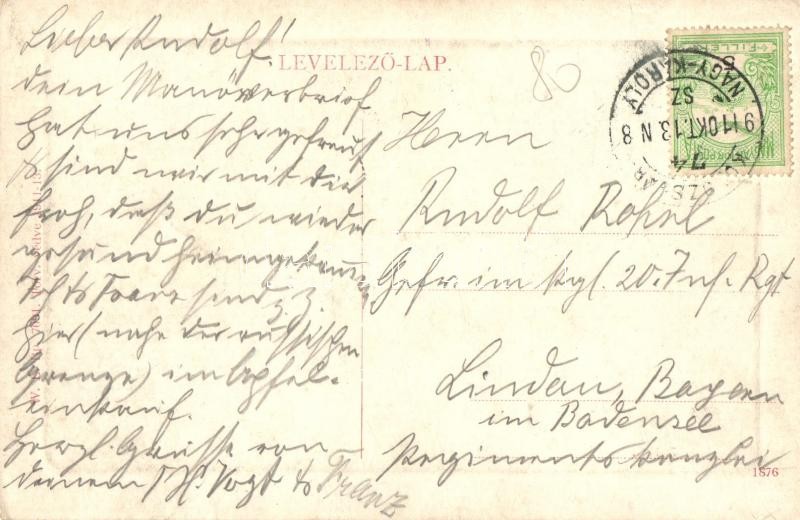 Lieber Rudolf!
LEVELEZŐ-LAP.
80
dein Manöverbrief
hat uns sehr gefreut
& sind wir mit dir
froh, daß du wieder
gesund heimgekommen
Ich & Franz sind z. Z.
hier (nahe der russischen
Grenze) im Apfel-
einkauf.
Herzl. Grüsse von
deinem Vogt & Franz
Herrn
Rudolf
Gefr. im kgl. 20. Inf. Rgt
Lindau, Bayern
im Bodensee
Regimentskanzlei
1876
FILLÉR
NAGY-KÁROLY
SZ
911 OKT. 13. N 8
74